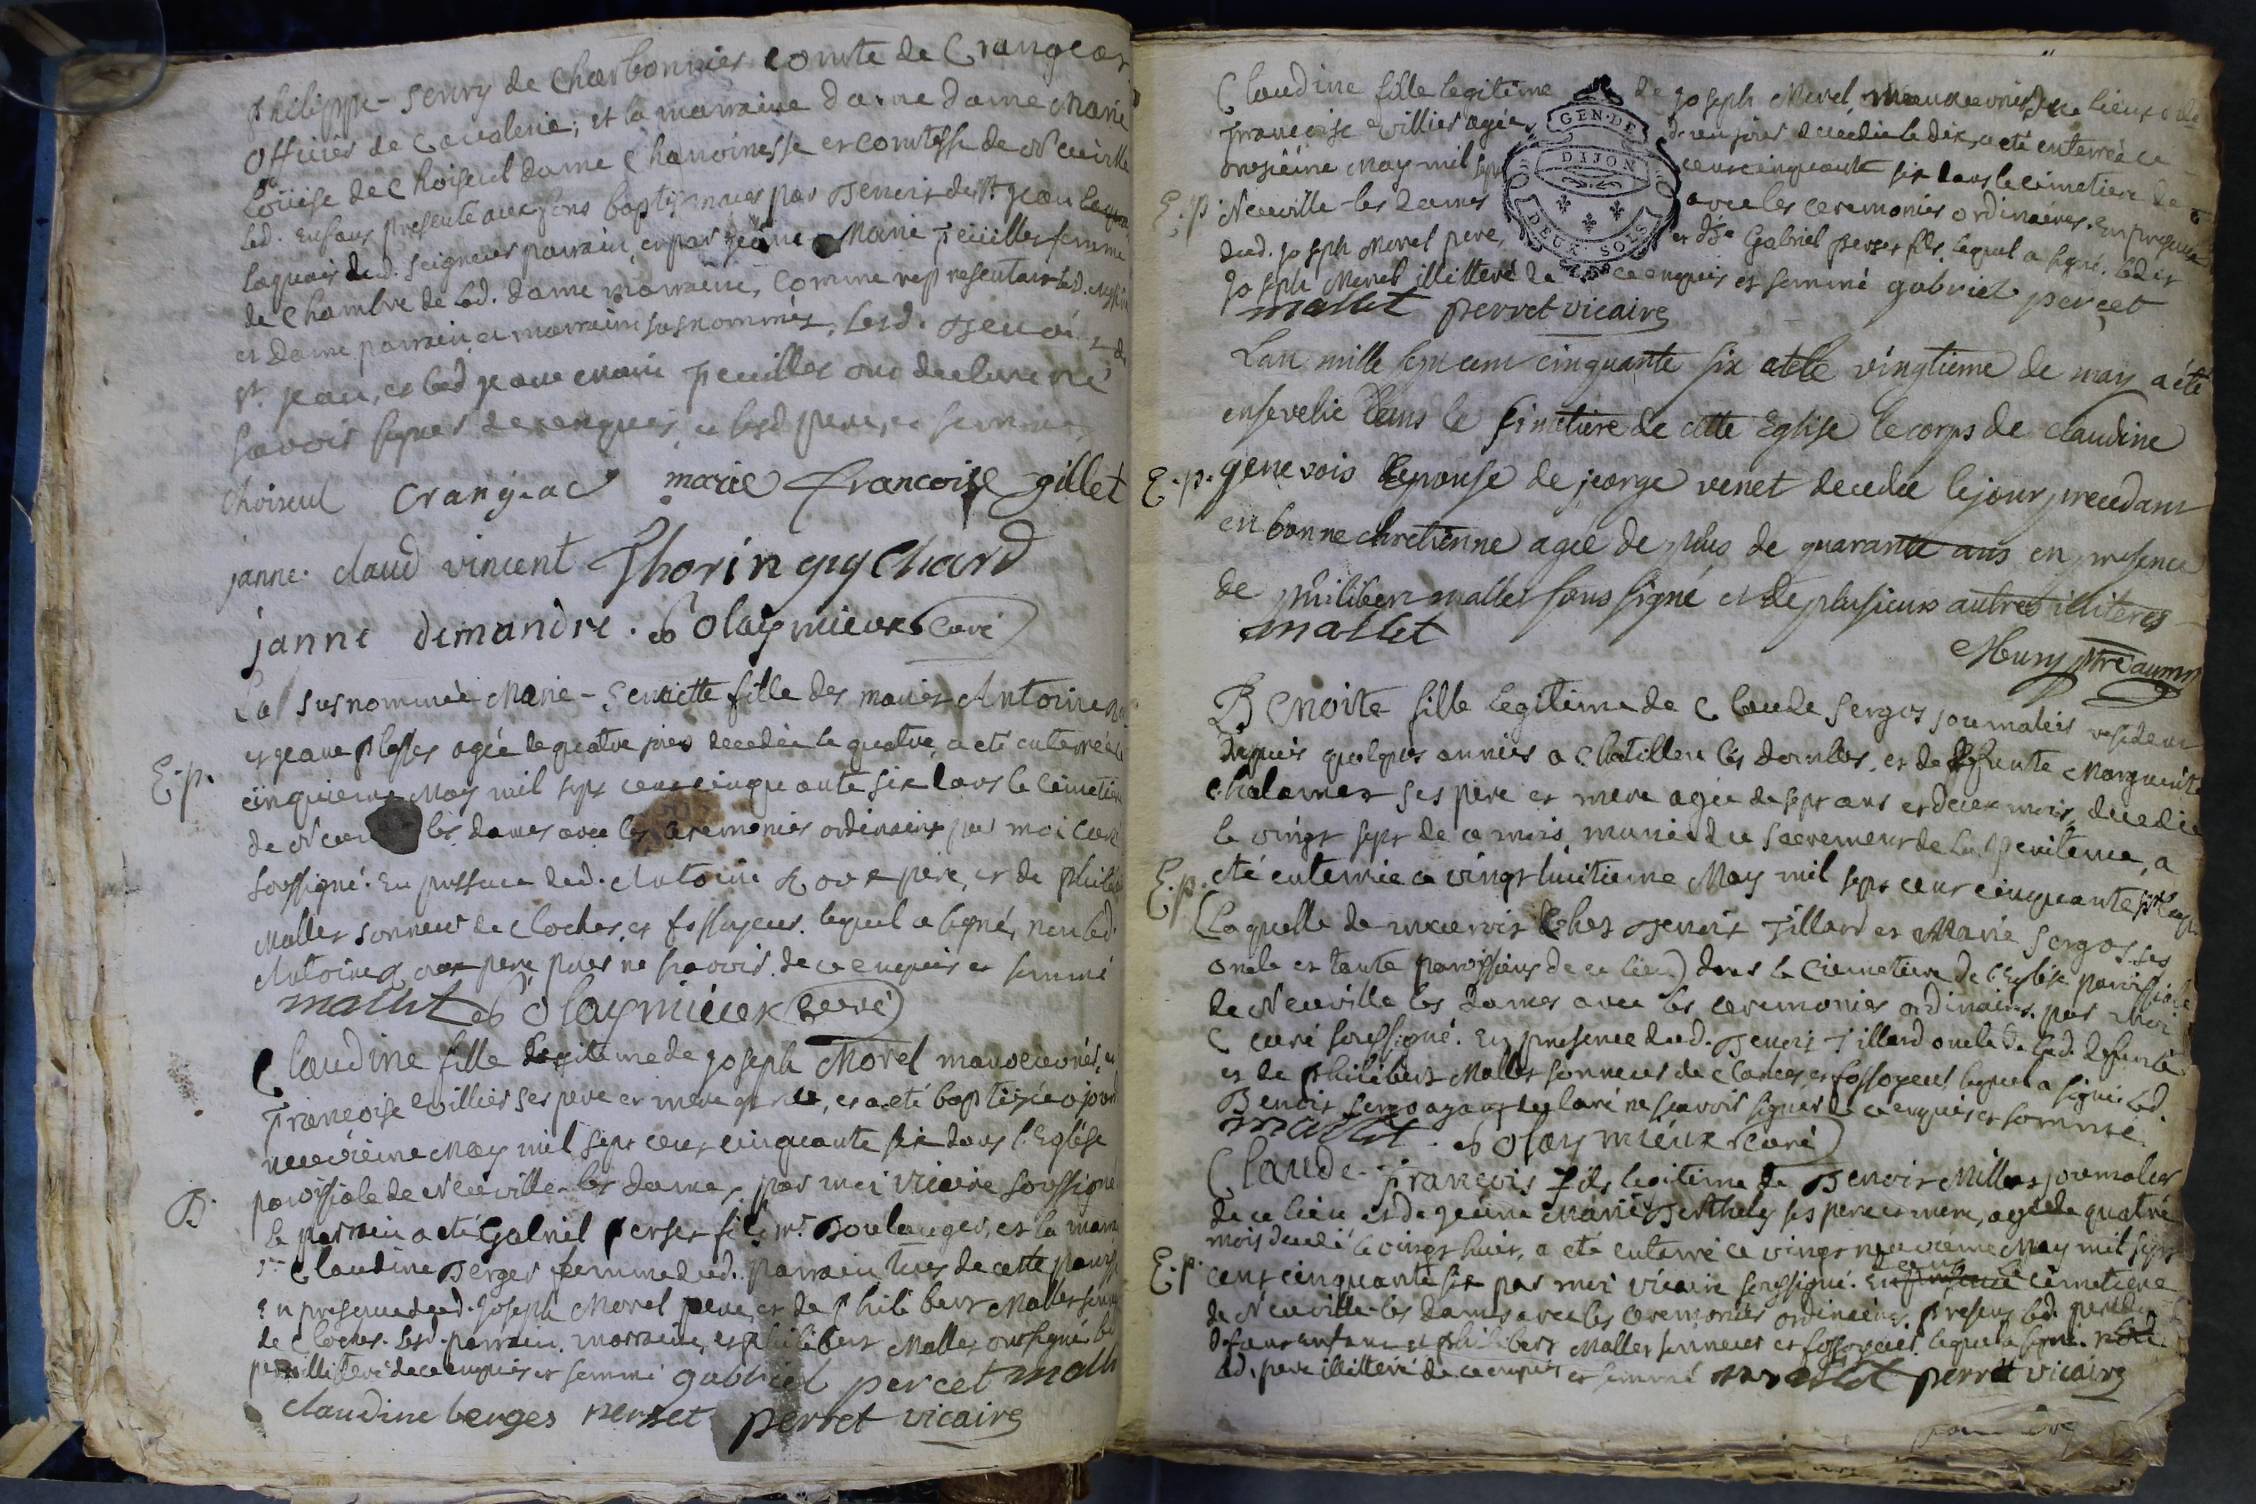 Philippe-henry de Charbonnier comte de Crangeac
officier de Cavalerie; et la marraine dame dame Marie
Loüise de Choiseul dame Chanoinesse et comtesse de Neuville
led. enfans presenté aux fons baptismaux par Benoit de st jean
laquais dud. seigneur parrain, et par jeanne Marie Feuillet femme
de chambre de lad. dame marraine, comme representans
et dame parrain et marraine susnommés, lesd. Benoit de
st jean, et lad. jeanne marie Feuillet ont declaré ne
savoir signer de ce enquis, et led. pere, et sommés
choiseul crangeac marie francoise gillet
janne claud vincent Thorin guychard
janne demandre. olaymieux Curé
La susnommée Marie-henriette fille des mariés Antoine
et jeane agée de quatre jours decedée le quatre, a eté enterrée
E. p.
cinquieme May mil sept cent cinquante six dans le cimetiere
de les dames avec les ceremonies ordinaires par moi Curé
soussigné. En presence dud. Antoine pere, et de
Mallet sonneur de cloches, et fossoyeur. lequel a signé, non led.
Antoine pere pour ne savoir de ce enquis et sommé
mallet olaymieux curé
Claudine fille legitime de joseph Morel manoeuvrier, et
Françoise villier ses pere et mere, et a eté baptisée
neuvieme May mil sept cent cinquante six dans l'Eglise
B.
paroissiale de Neuville les dames, par moi vicaire soussigné
le parrain a eté Gabriel Perset fils mr. Boulanger, et la
Claudine Berger femme dud. parrain tous de cette
En presence dud. joseph Morel pere, et de Philibert Mallet
de cloches. lesd. parrain, marraine, et philibert Mallet ont signé
pere illiteré de ce enquis et sommé gabriel percet mall
claudine berges perset perret vicaire
Claudine fille legitime de joseph Morel manoeuvrier de ce lieu
GEN. DE
DIJON
DEUX. SOLS
françoise villier agée d'un jour decedée le dix, a eté enterrée ce
onzième May mil sept cent cinquante six dans le cimetiere de
E. p.
Neuville-les Dames avec les ceremonies ordinaires. En presence
dud. joseph Morel pere, et de Gabriel perset fils lequel a signé. led.
joseph Morel illitteré de ce enquis et sommé gabriel perçet
mallet perret vicaire
Lan mille sept cent cinquante six et le vingtieme de may a été
ensevelie dans le simetiere de cette Eglise le corps de claudine
E. p.
genevois Epouse de jeorge venet decedée le jour precedant
en bonne chretienne agée de plus de quarante ans en presence
de philibert mallet sous signé et de plusieurs autres illiteres
mallet
ptre aumr
Benoite fille legitime de Claude Sergos journalier resident
depuis quelques années a Chatillon les dombes, et de defunte Marguerite
Chalamet ses pere et mere agée de sept ans et deux mois, decedée
le vingt sept de ce mois, munie du sacrement de la Penitence, a
E. p.
eté enterrée ce vingt huitieme May mil sept cent cinquante six
(laquelle demeuroit chez Benoit Tillard et Marie Sergos ses
oncle et tante paroissiens de ce lieu) dans le cimetiere de l'Eglise paroissiale
de Neuville les dames avec les ceremonies ordinaires. par moi
curé soussigné. En presence dud. Benoit Tillard oncle de lad. defunte
et de Philibert Mallet sonneur de cloches, et fossoyeur lequel a signé. led.
Benoit ayant declaré ne scavoir signer de ce enquis et sommé.
mallet. olaymieux curé
Claude-François fils legitime de Benoit Millet journalier
de ce lieu et de jeanne marie Berthely ses pere et mere, agé de quatre
mois decedé le vingt huit, a eté enterré ce vingt neuvieme May mil sept
E. p.
cent cinquante six par moi vicaire soussigné. cimetiere
de Neuville-les dames avec les ceremonies ordinaires. Presens led. pere du
defunt enfant et philibert Mallet sonneur et fossoyeur, lequel a signé.
led. pere illitteré de ce enquis et sommé mallet perret vicaire